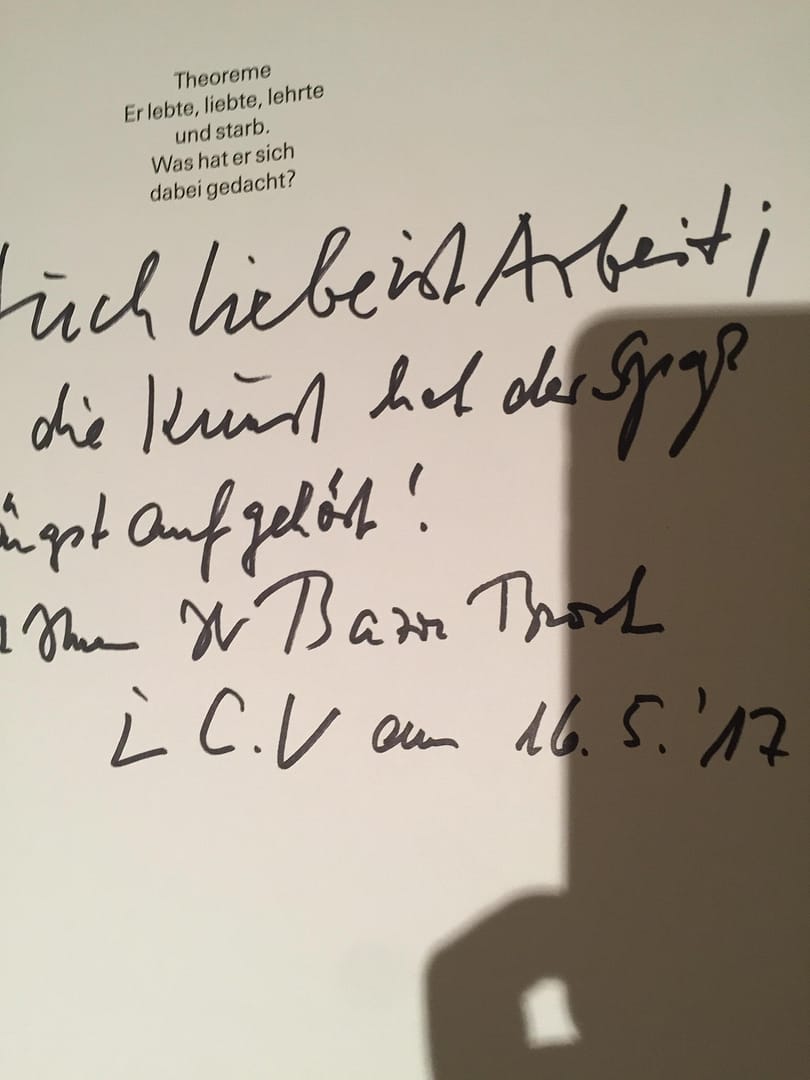 Theoreme
Er lebte, liebte, lehrte
und starb.
Was hat er sich
dabei gedacht?
Auch Liebe ist Arbeit;
die Kunst hat der Spaß
ängst aufgehört!
Ihr Bazon Brock
C.V am 16.5.'17